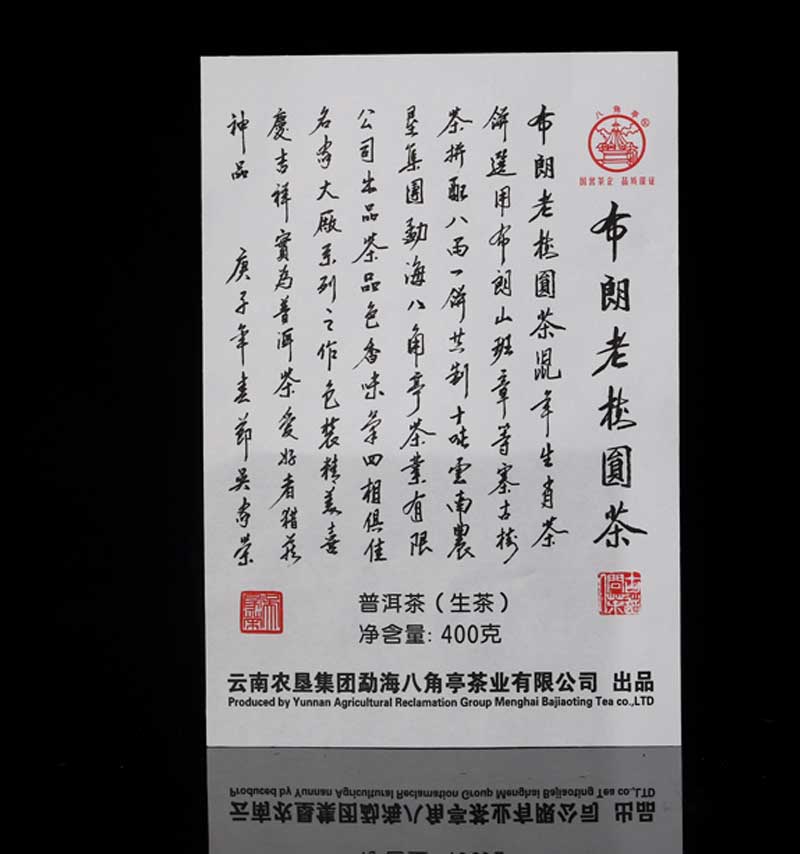 八角亭
国营茶企 品质保证
布朗老樹圓茶
布朗老樹圓茶鼠年生肖茶
餅選用布朗山班章等寨古樹
茶拼配八兩一餅共制十吨雲南農
墾集團勐海八角亭茶業有限
公司出品茶品色香味氣四相俱佳
名家大廠系列之作包裝精美喜
慶吉祥實為普洱茶愛好者猎藏
神品 庚子年春節吳家榮
普洱茶（生茶）
净含量: 400克
云南农垦集团勐海八角亭茶业有限公司 出品
Produced by Yunnan Agricultural Reclamation Group Menghai Bajiaoting Tea co.,LTD